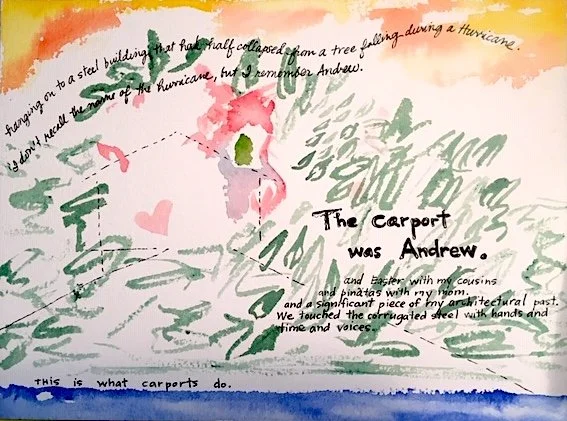 hanging on to a steel building that had half collapsed from a tree falling during a Hurricane.
I don't recall the name of the hurricane, but I remember Andrew.
The carport
was Andrew.
and Easter with my cousins
and pinatas with my mom.
and a significant piece of my architectural past.
We touched the corrugated steel with hands and
time and voices.
THIS is what carports do.